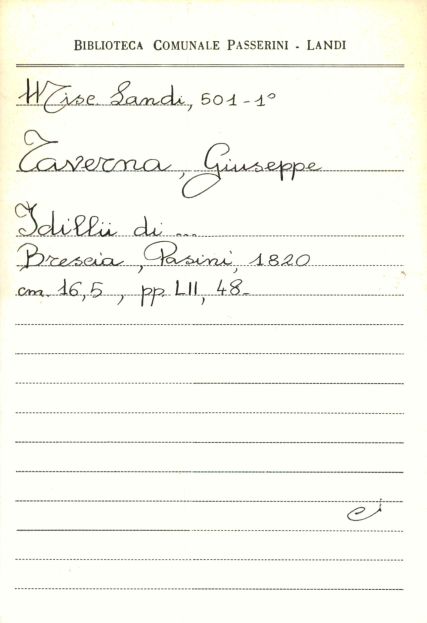 BIBLIOTECA COMUNALE PASSERINI - LANDI
Misc. Landi, 501-1°
Taverna, Giuseppe
Idillii di ...
Brescia, Pasini, 1820
cm. 16,5, pp. LII, 48.